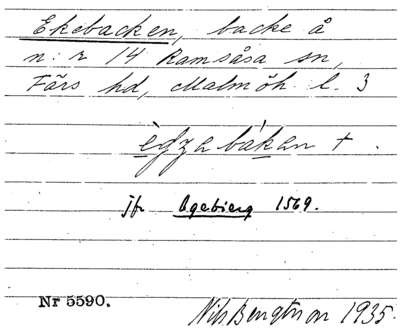 Ekebacken, backe å
n:r 14 Ramsåsa sn,
Färs hd, Malmöh. l. 3
èdʒa bákan + .
jfr Agebierg 1569.
Nr 5590.
Nils Bengtsson 1935.